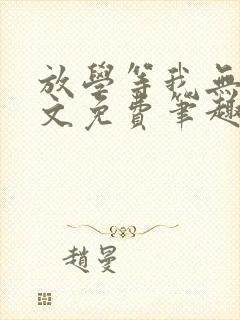 放學等我無
文免費筆趣
趙曼